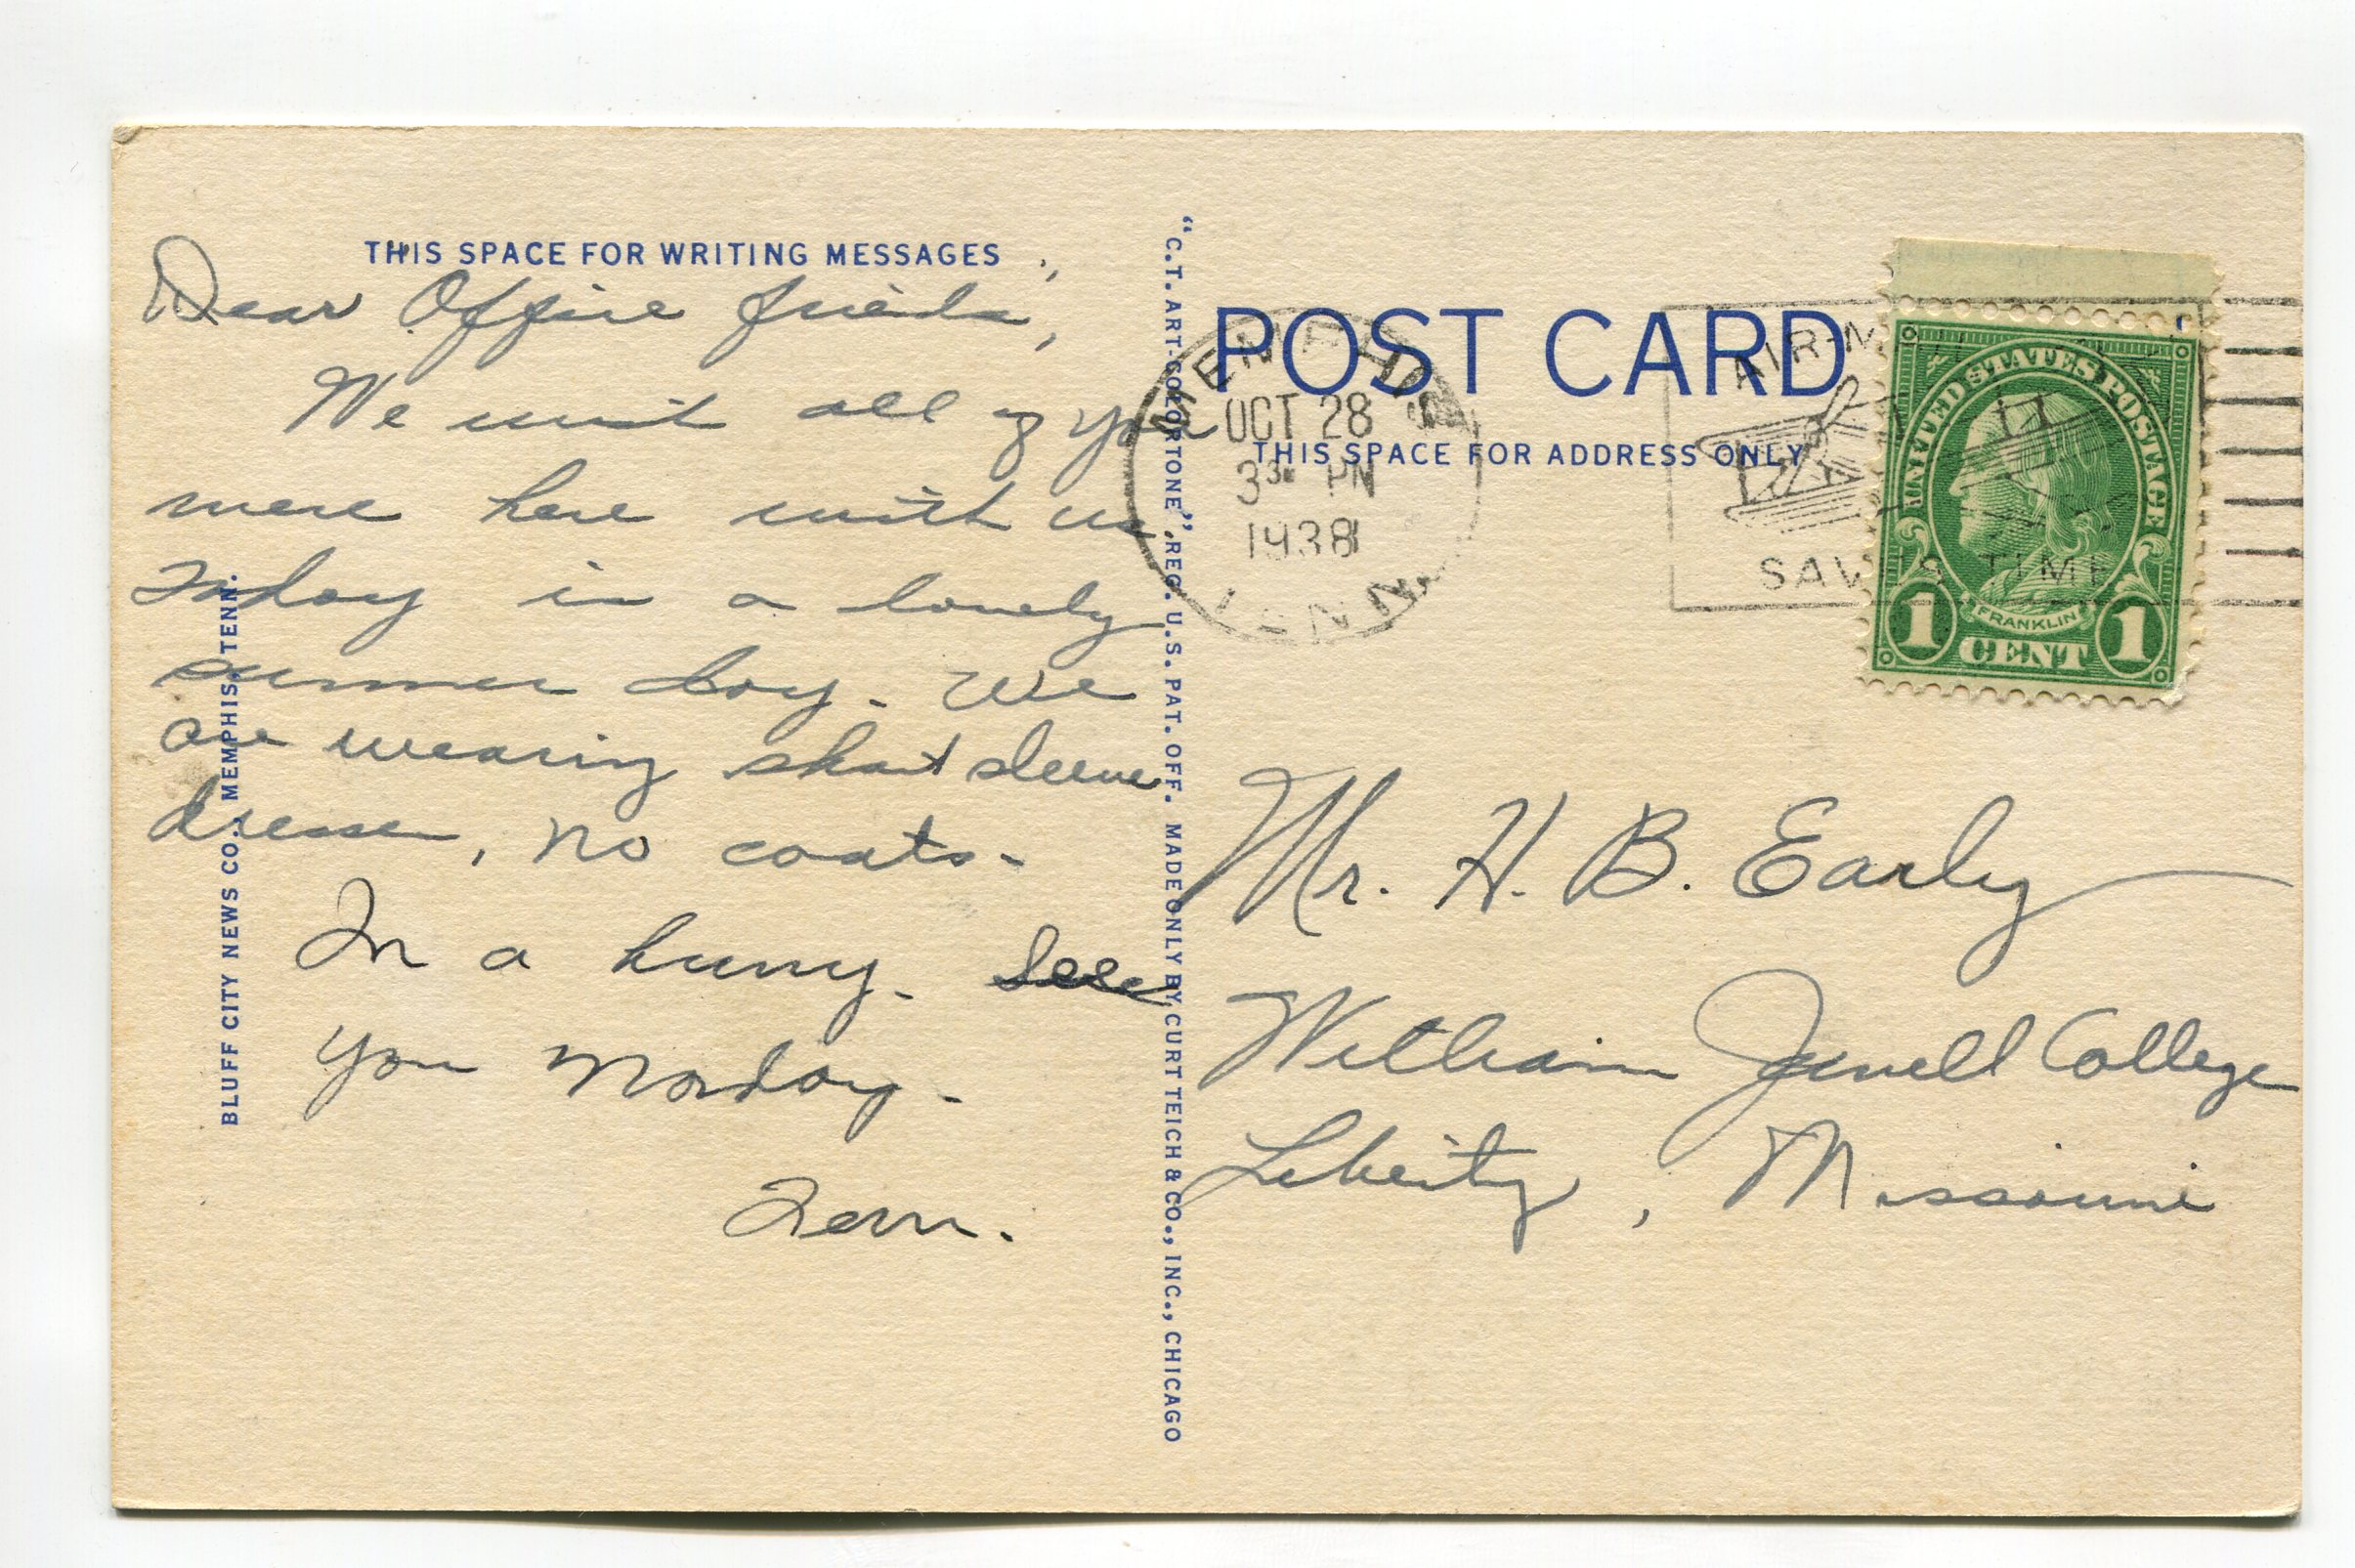 THIS SPACE FOR WRITING MESSAGES
Dear Office friends,
We wish all of you
were here with us
Today is a lovely
summer day. We
are wearing short sleeve
dresses, no coats.
In a hurry. See
you Monday.
Fern.
BLUFF CITY NEWS CO., MEMPHIS, TENN.
"C.T. ART-COLORTONE" REG. U.S. PAT. OFF. MADE ONLY BY CURT TEICH & CO., INC., CHICAGO
POST CARD
THIS SPACE FOR ADDRESS ONLY
MEMPHIS
OCT 28
3 30 PM
1938
TENN.
AIR-MAIL
SAVES TIME
UNITED STATES POSTAGE
FRANKLIN
1 CENT 1
Mr. H. B. Early
William Jewell College
Liberty, Missouri